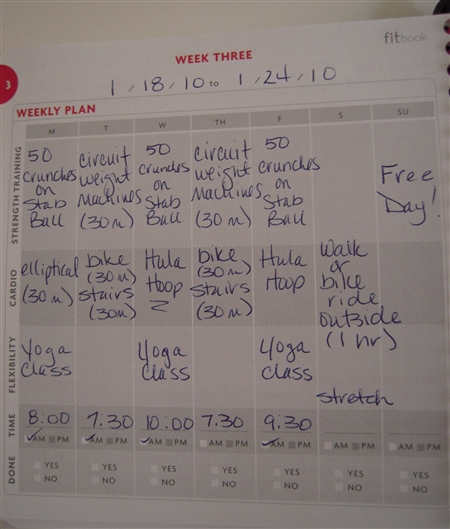 fitbook
WEEK THREE
3
1/18/10 to 1/24/10
WEEKLY PLAN
M T W TH F S SU
STRENGTH TRAINING
50 crunches on Stab Ball
circuit weight Machines (30m)
50 crunches on Stab Ball
circuit weight Machines (30m)
50 crunches on Stab Ball
Free Day!
CARDIO
elliptical (30m)
bike (30m) stairs (30m)
Hula Hoop
bike (30m) Stairs (30m)
Hula Hoop
Walk or bike ride outside (1 hr)
FLEXIBILITY
Yoga class
Yoga Class
Yoga class
stretch
TIME
8:00 7:30 10:00 7:30 9:30
AM PM AM PM AM PM AM PM AM PM AM PM AM PM
DONE
YES YES YES YES YES YES YES
NO NO NO NO NO NO NO